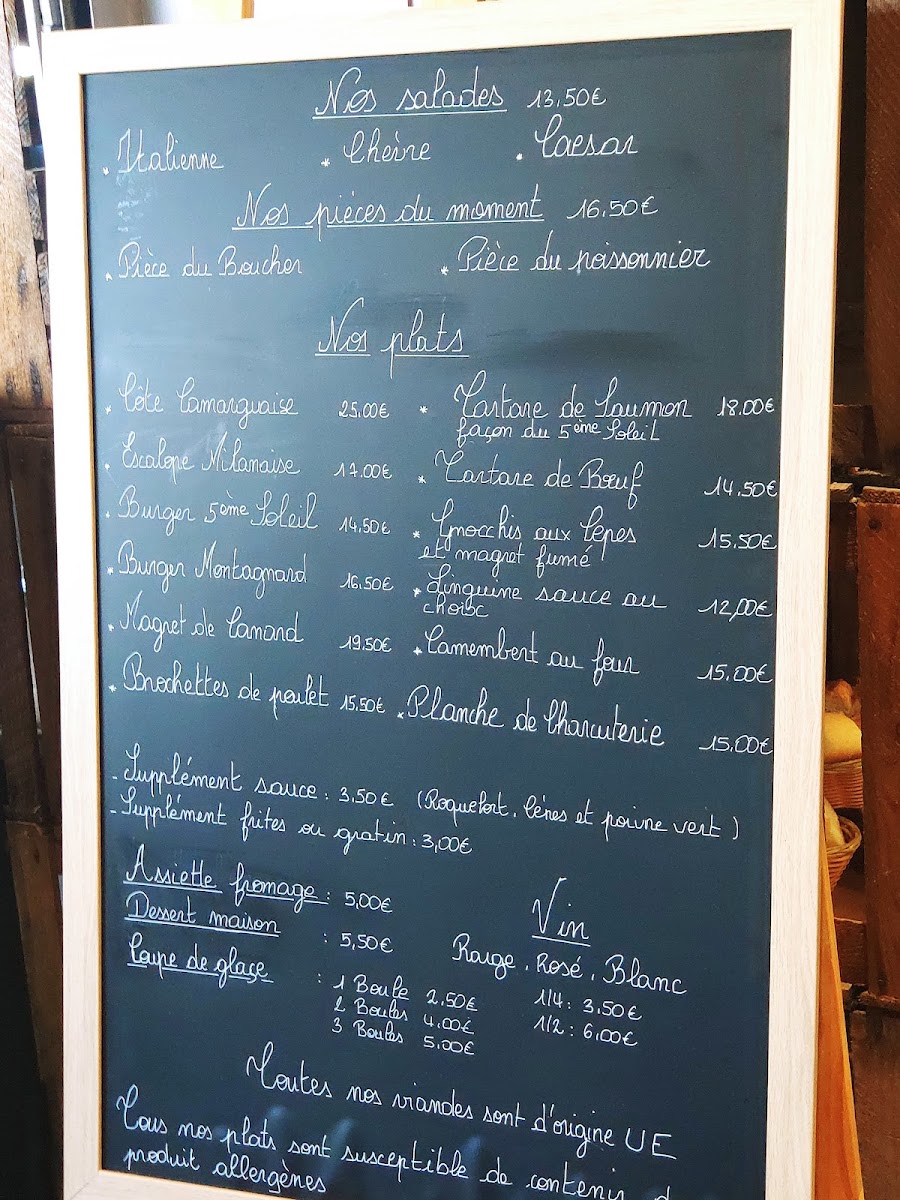 Nos salades 13.50€
* Italienne * Chèvre * Caesar
Nos pièces du moment 16.50€
* Pièce du Boucher * Pièce du poissonnier
Nos plats
* Côte Camarguaise 25.00€
* Escalope Milanaise 17.00€
* Burger 5ème Soleil 14.50€
* Burger Montagnard 16.50€
* Magret de Canard 19.50€
* Brochettes de poulet 15.50€
* Tartare de Saumon 18.00€
façon du 5ème Soleil
* Tartare de Bœuf 14.50€
* Gnocchis aux Cèpes 15.50€
et magret fumé
* Linguine sauce au 12,00€
choix
* Camembert au four 15.00€
* Planche de Charcuterie 15,00€
- Supplément sauce : 3.50€ (Roquefort, Cèpes et poivre vert)
- Supplément frites ou gratin : 3,00€
Assiette fromage : 5,00€
Dessert maison : 5,50€
Coupe de glaçe : 1 Boule 2.50€
2 Boules 4.00€
3 Boules 5.00€
Vin
Rouge, Rosé, Blanc
1/4 : 3.50€
1/2 : 6.00€
Toutes nos viandes sont d'origine UE
Tous nos plats sont susceptible de contenir d
produit allergènes